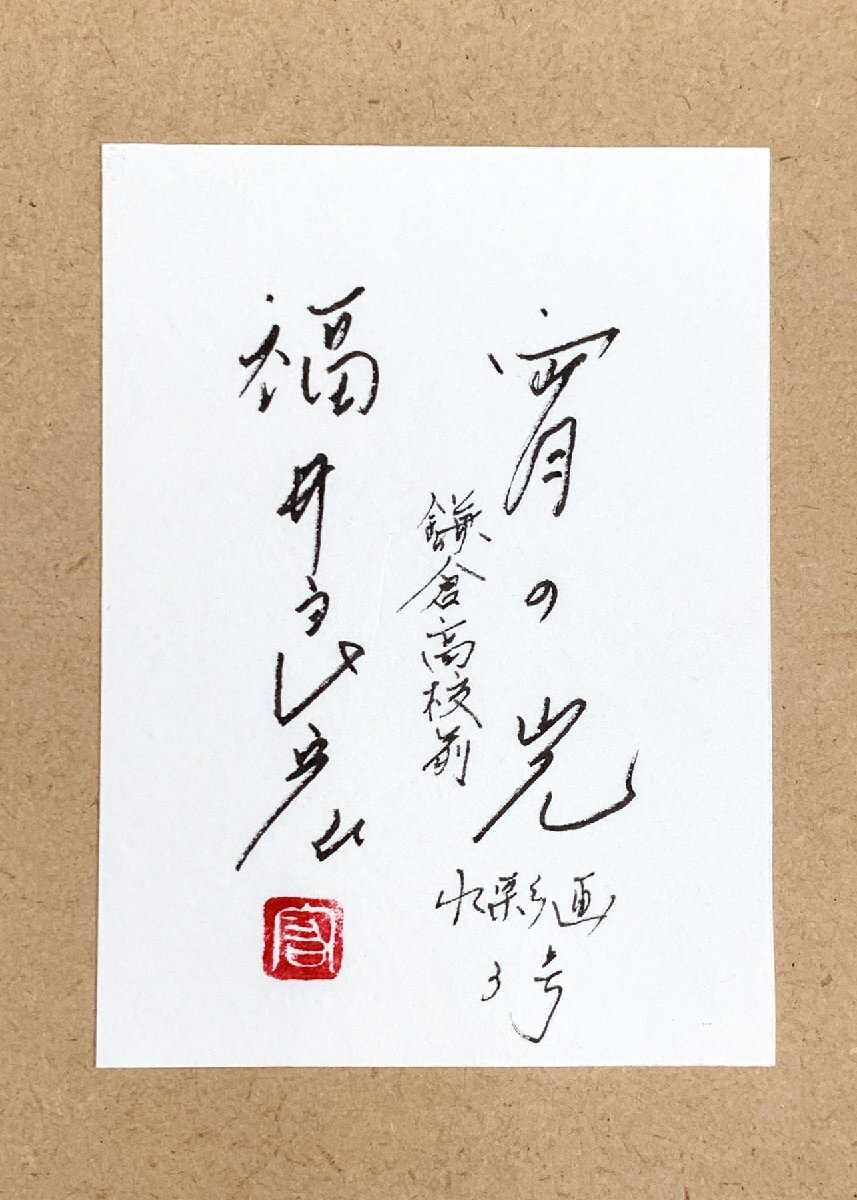 宵の光
鎌倉高校前
水彩画
3号
福井良宏